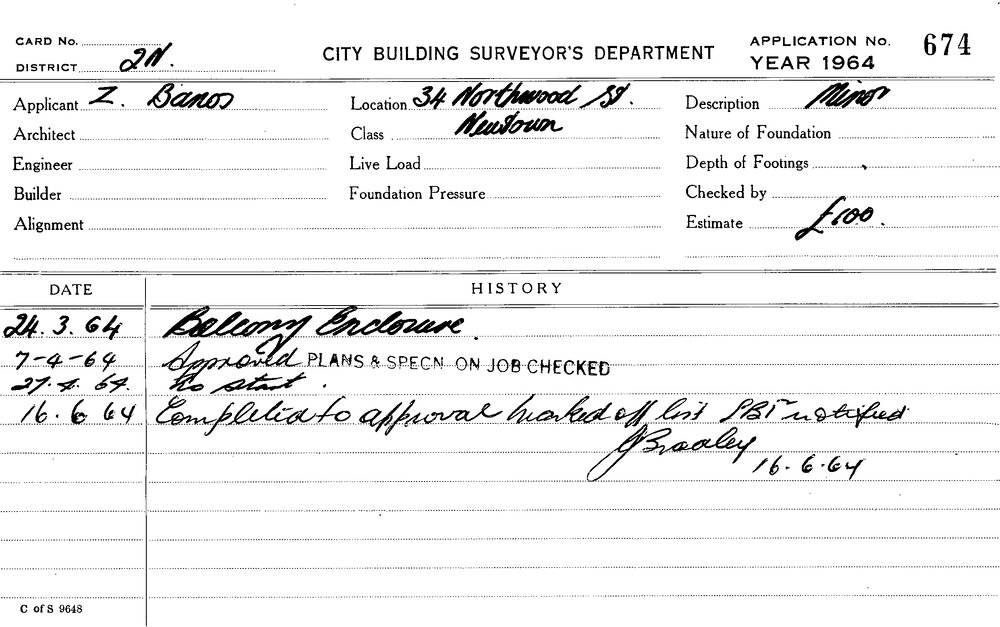 CARD No.
DISTRICT 2N.
CITY BUILDING SURVEYOR'S DEPARTMENT
APPLICATION No. 674
YEAR 1964
Applicant Z. Banos
Location 34 Northwood St.
Newtown
Description Minor
Architect
Class
Nature of Foundation
Engineer
Live Load
Depth of Footings
Builder
Foundation Pressure
Checked by
Alignment
Estimate £100.
DATE HISTORY
24. 3. 64 Balcony Enclosure.
7-4-64 Approved PLANS & SPECN ON JOB CHECKED
27. 4. 64. No start.
16. 6 64 Completed to approval marked off list notified
16. 6. 64
C of S 9648